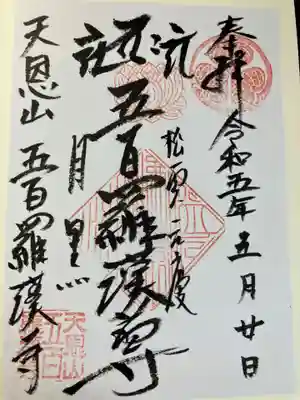 奉拝 令和五年 五月廿日
松雲元慶
五百羅漢尊
目黒
天恩山 五百羅漢寺
天恩山
五百